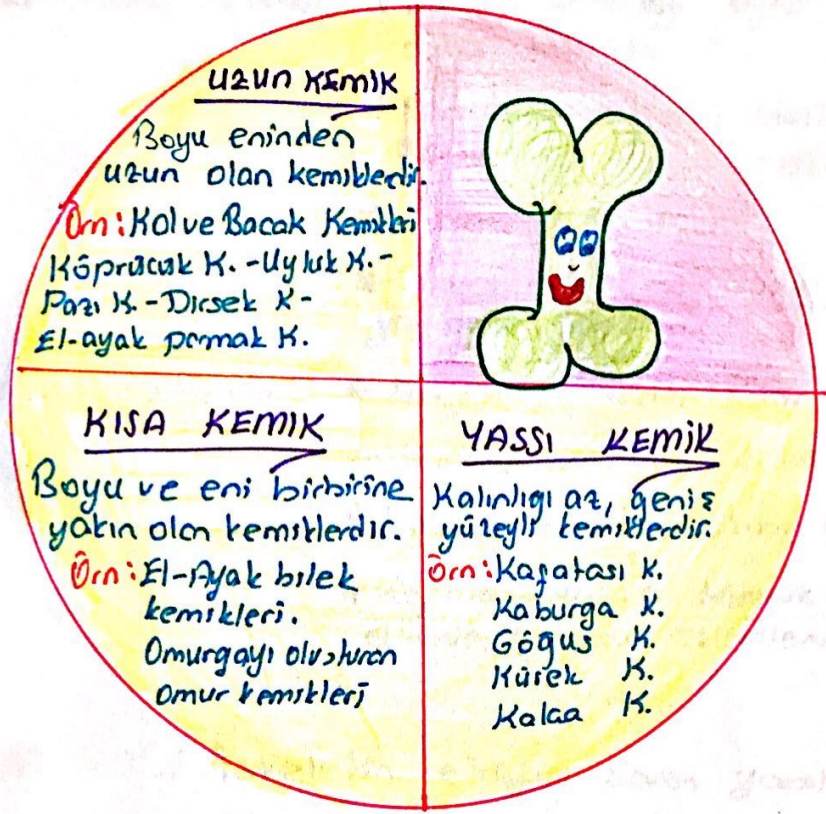 UZUN KEMİK
Boyu eninden
uzun olan kemiklerdir.
Örn: Kol ve Bacak Kemikleri
Köprücük K. - Uyluk K. -
Pazı K. - Dirsek K -
El-ayak parmak K.
KISA KEMİK
Boyu ve eni birbirine
yakın olan kemiklerdir.
Örn: El-Ayak bilek
kemikleri.
Omurgayı oluşturan
Omur kemikleri
YASSI KEMİK
Kalınlığı az, geniş
yüzeyli kemiklerdir.
Örn: Kafatası K.
Kaburga K.
Göğüs K.
Kürek K.
Kalça K.